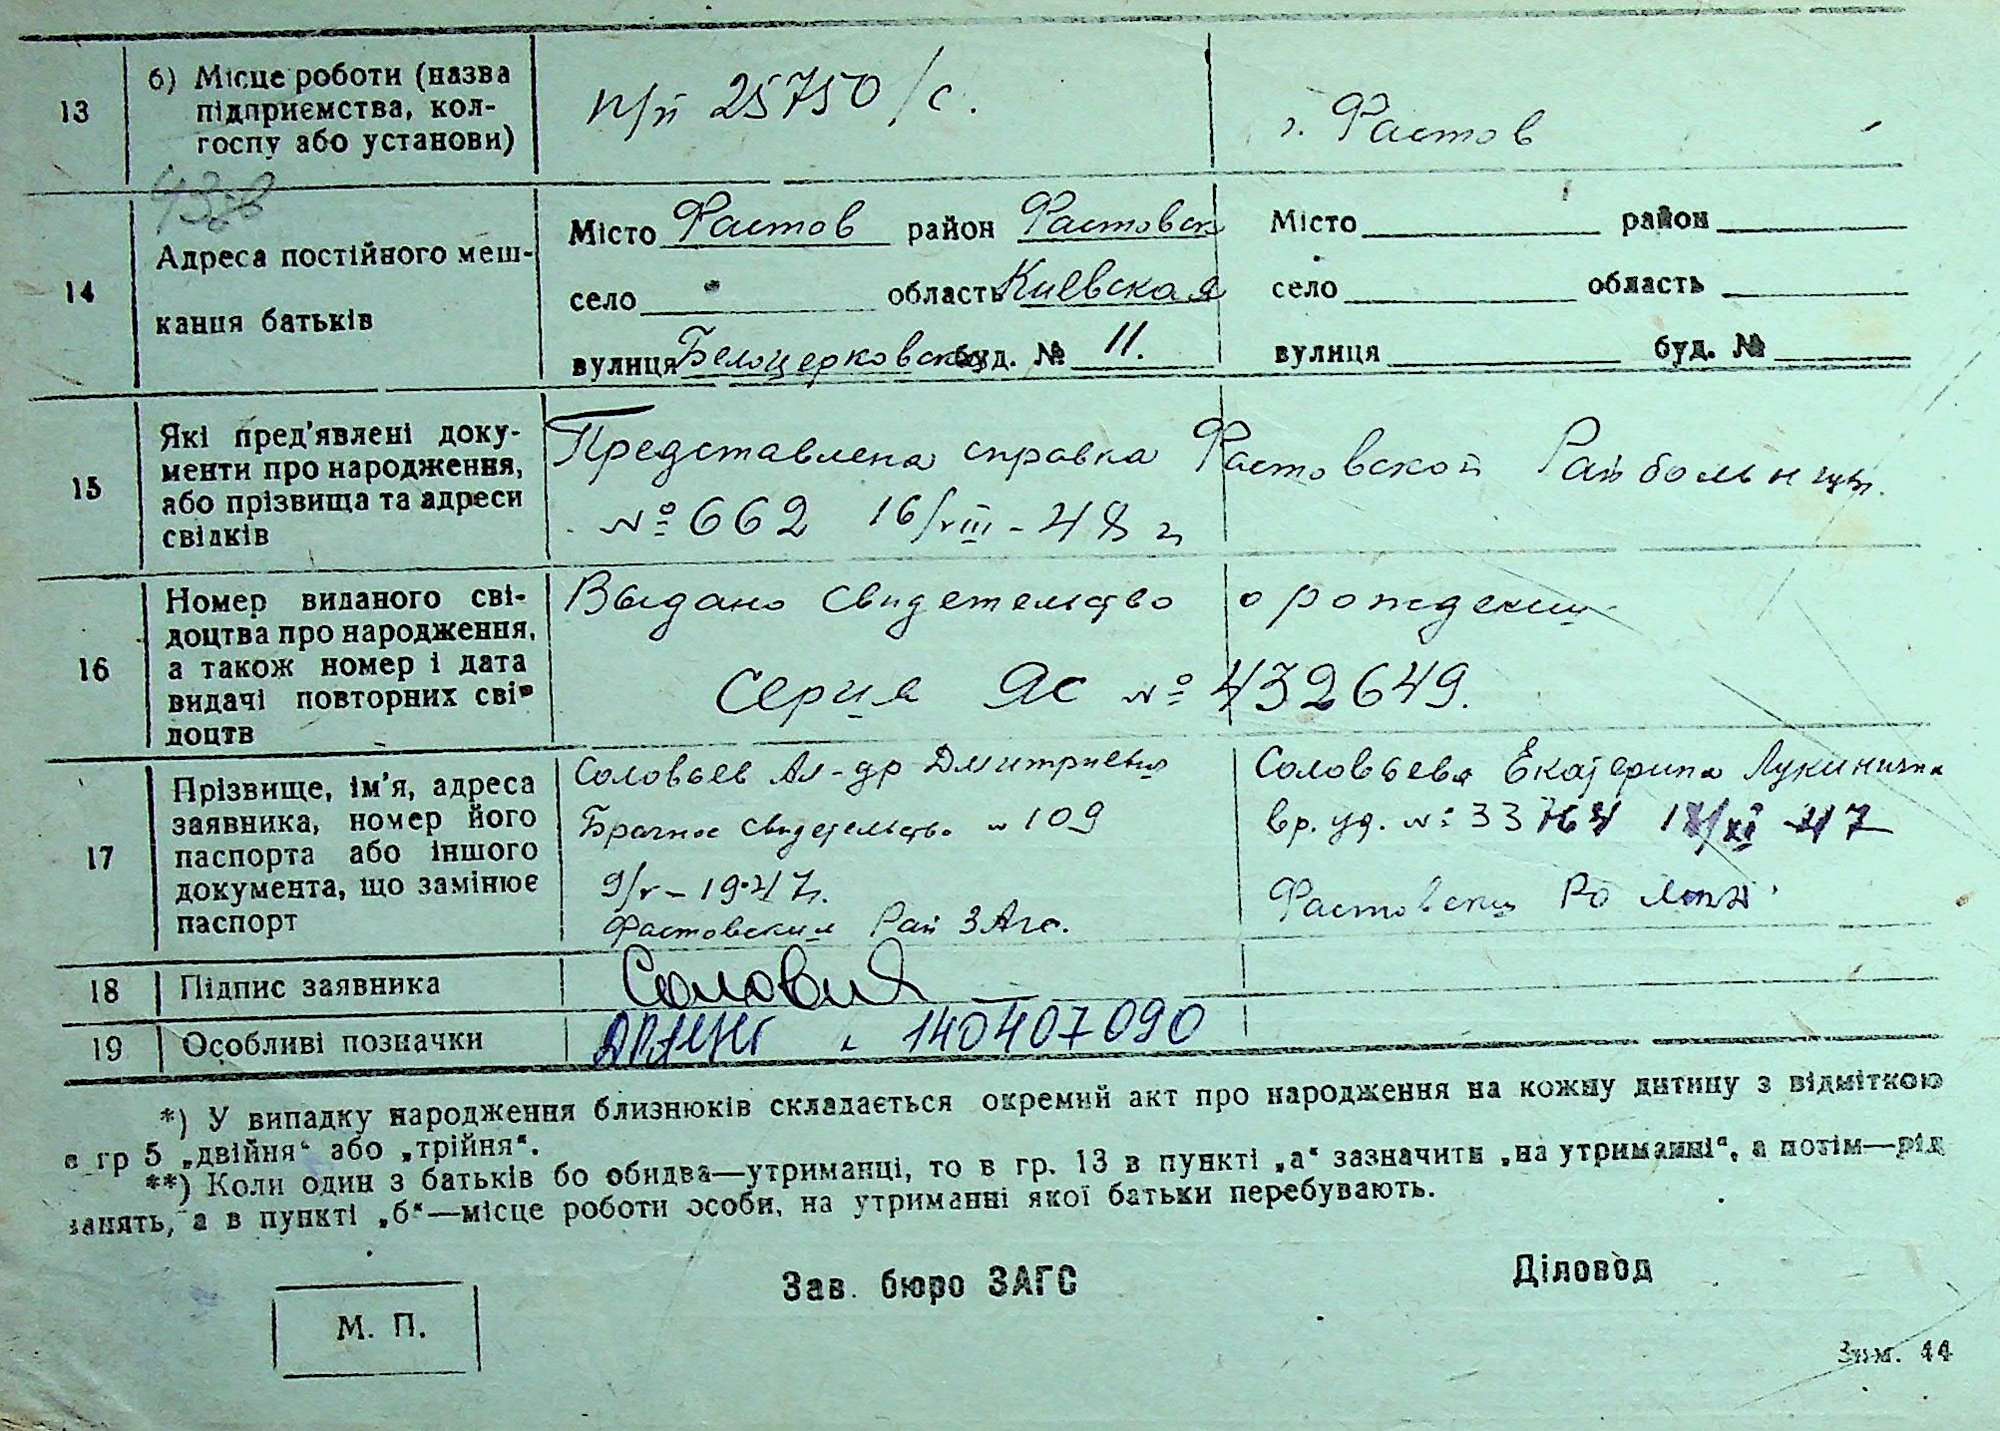 13
б) Місце роботи (назва
підприємства, кол-
госпу або установи)
п/п 25750/с.
г. Фастов
14
Адреса постійного меш-
канця батьків
Місто Фастов район Фастовск
село область Киевская
вулиця Белоцерковская буд. № 11.
Місто район
село область
вулиця буд. №
15
Які пред'явлені доку-
менти про народження,
або прізвища та адреси
свідків
Представлена справка Фастовской Райбольниц.
№ 662 16/VIII - 48 г
16
Номер виданого сві-
доцтва про народження,
а також номер і дата
видачі повторних сві-
доцтв
Выдано свидетельство о рождении
Серия ЯС № 432649.
17
Прізвище, ім'я, адреса
заявника, номер його
паспорта або іншого
документа, що замінює
паспорт
Соловьев Ал-др Дмитриевич
Брачное свидетельство № 109
9/V - 1947г.
Фастовским Рай ЗАГС.
Соловьева Екатерина Лукинична
вр. уд. № 33764 /XI - 47
Фастовским РО
18
Підпис заявника
19
Особливі позначки
140407090
*) У випадку народження близнюків складається окремий акт про народження на кожну дитину з відміткою
в гр 5 „двійня“ або „трійня“.
**) Коли один з батьків бо обидва—утриманці, то в гр. 13 в пункті „а“ зазначити „на утриманні“, а потім—рід
занять, а в пункті „б“—місце роботи особи, на утриманні якої батьки перебувають.
Зав. бюро ЗАГС
Діловод
М. П.
Зам. 44